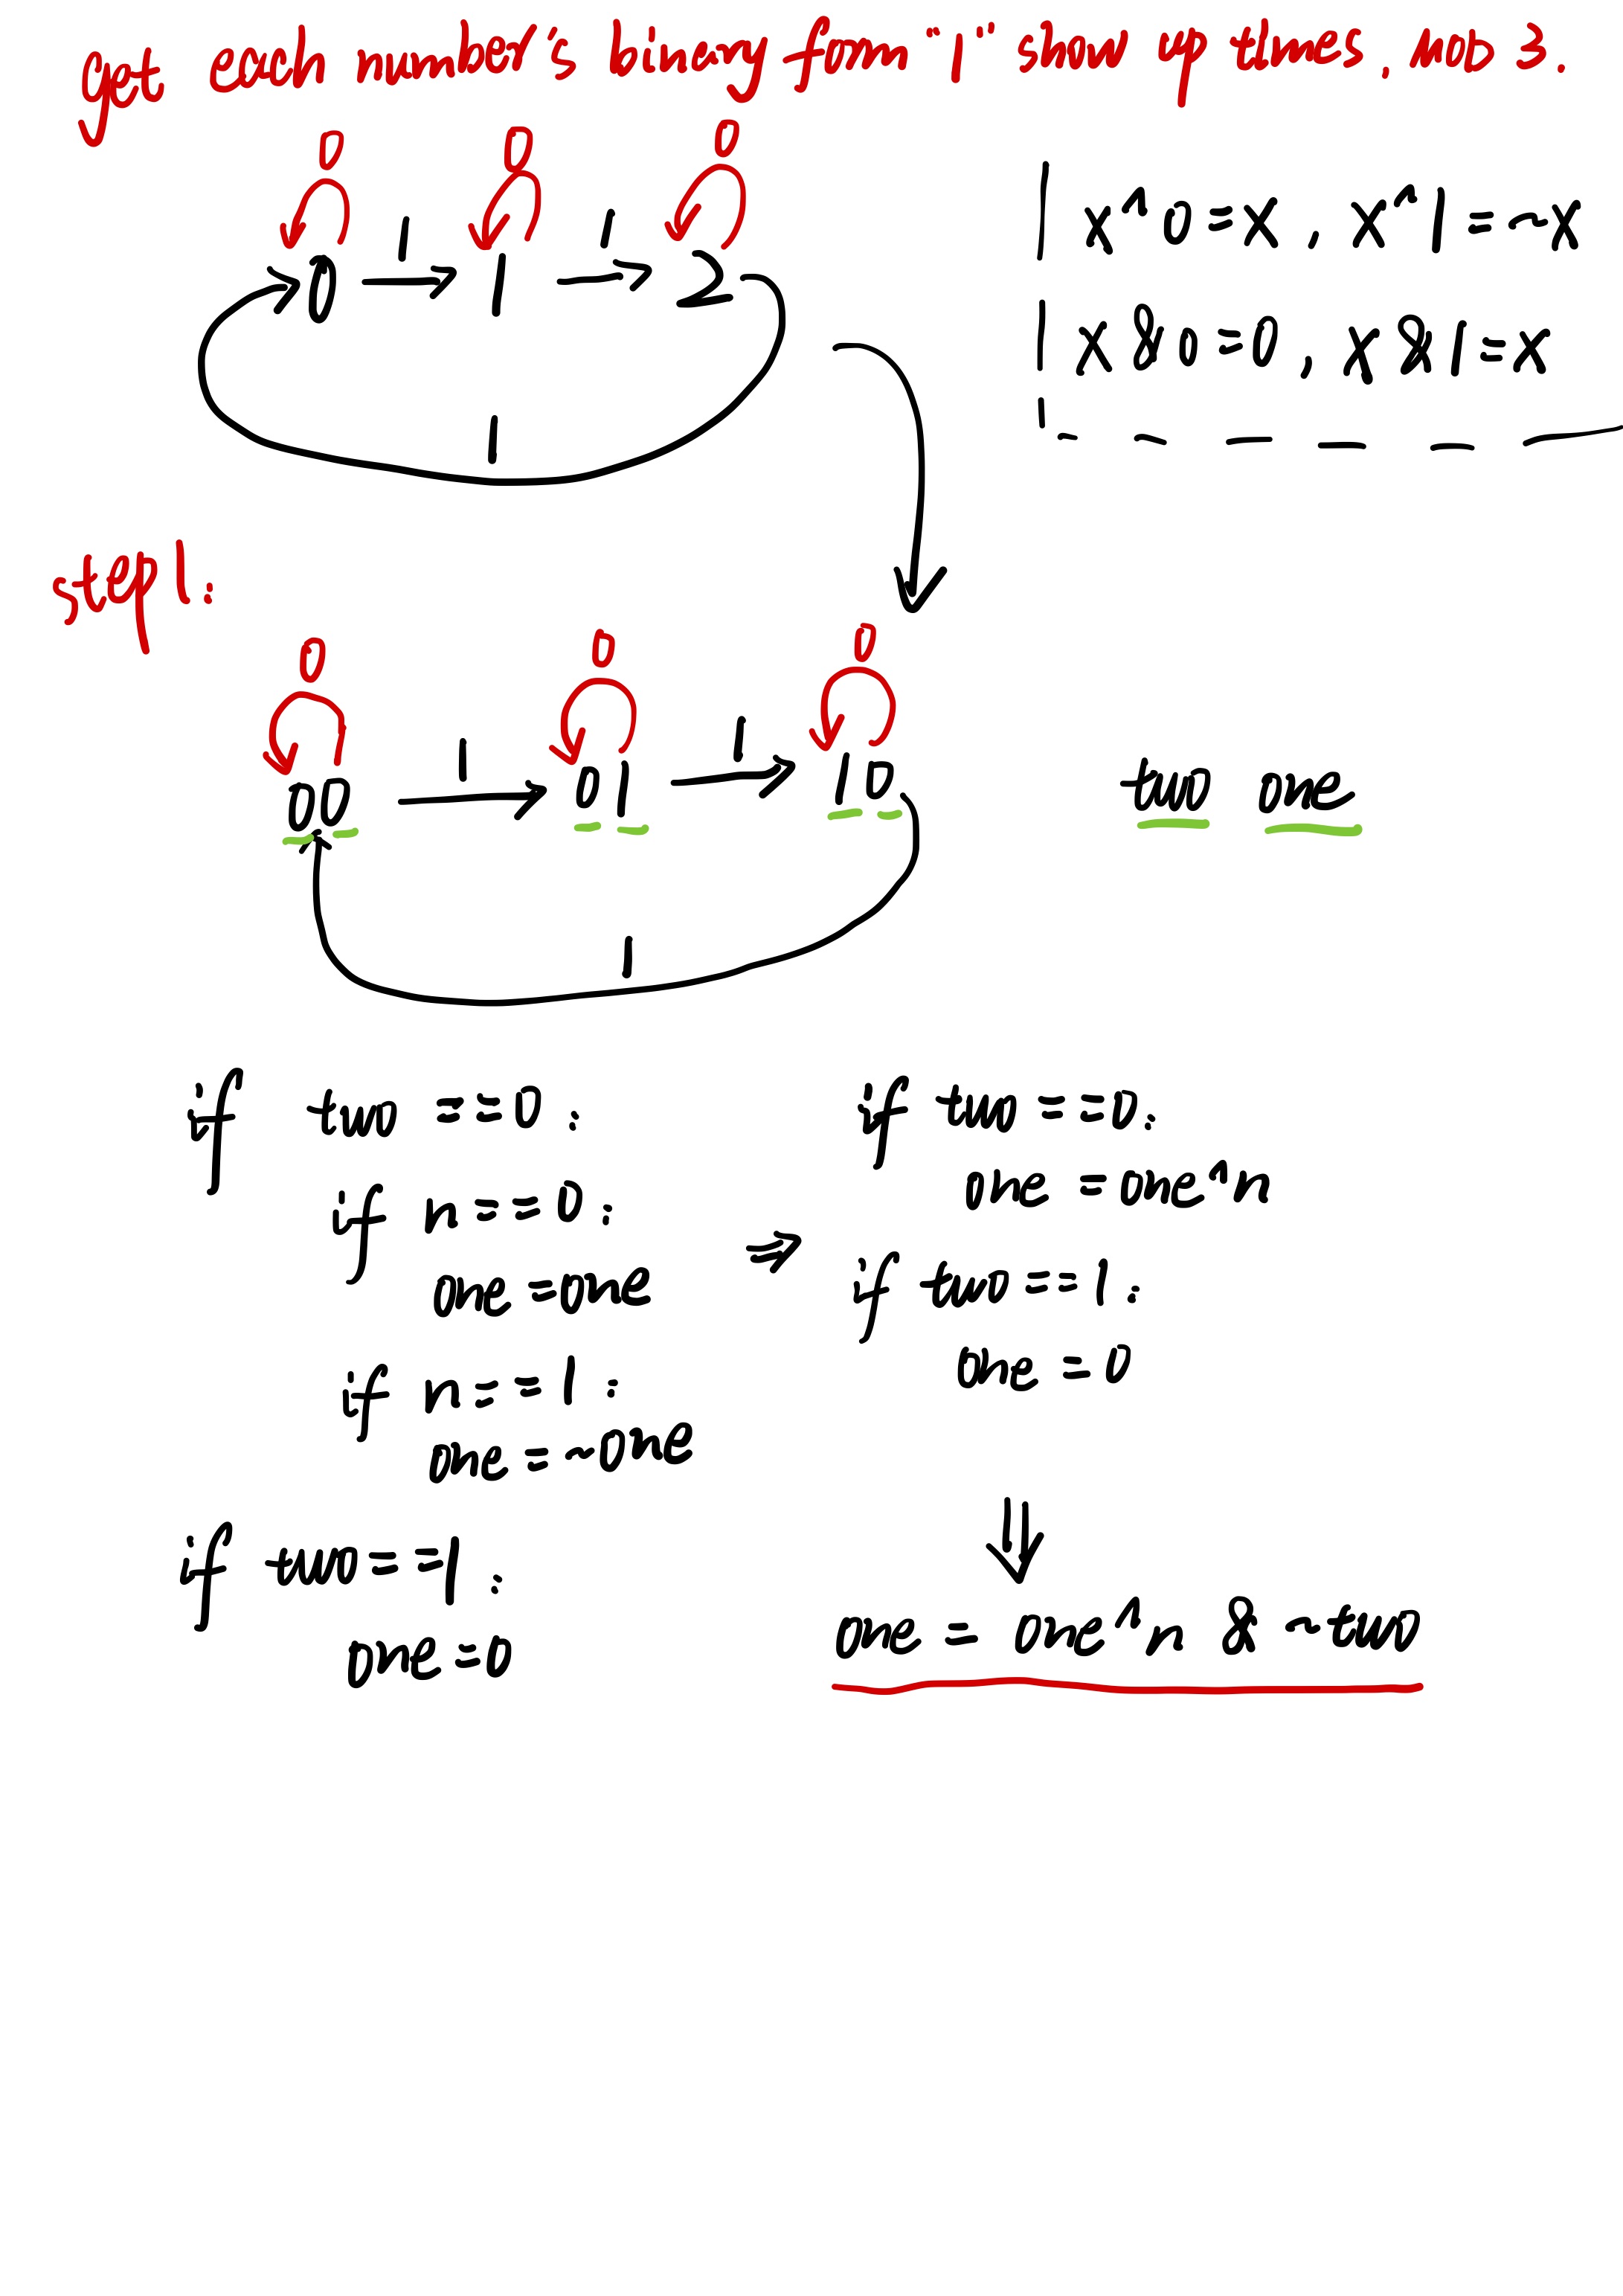 get each number's binary form "1" show up times, mod 3.
0 0 0
0 1 1 1 2
1
x^0=x, x^1=~x
x&0=0, x&1=x
step1:
0 0 0
00 1 01 1 10
1
two one
if two ==0:
if n==0:
one =one
if n==1:
one =~one
if two==1:
one=0
⇒
if two==0:
one =one^n
if two==1:
one =0
⇓
one = one^n & ~two